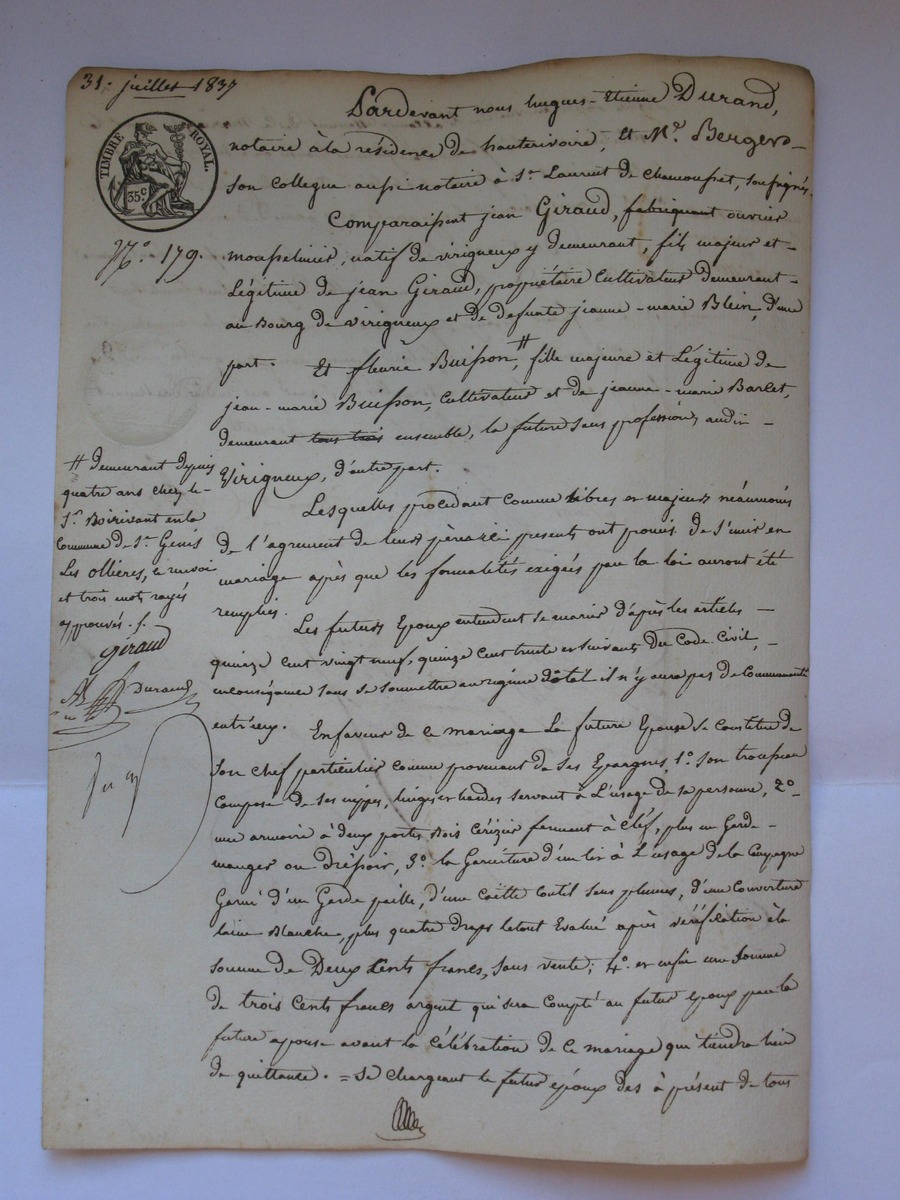 31. juillet 1837
TIMBRE ROYAL.
35 c.
N.º 179.
Pardevant nous hugues-Etienne Durand,
notaire à la residence de hauterivoire, et M.e Berger
son collegue aussi notaire à St Laurent de Chamousset, soussignés.
Comparaissent jean Giraud, fabriquant ouvrier
mousselinier, natif de virigneux y demeurant, fils majeur et
Légitime de jean Giraud, propriétaire cultivateur demeurant
au Bourg de virigneux et de defunte jeanne-marie Blein, d'une
part. Et fleurie Buisson, # fille majeure et Légitime de
jean-marie Buisson, cultivateur et de jeanne-marie Barlet,
demeurant tous trois ensemble, la future sans profession, audit
Virigneux, d'autre part.
# demeurant depuis
quatre ans chez le
Sr Boirivant en la
Commune de St Genis
Les ollières, ce renvoi
et trois mots rayés
approuvés.
Giraud
Durand
Lesquelles procédant comme Libres et majeurs néanmoins
de l'agrément de leurs pères ici présents ont promis de s'unir en
mariage après que les formalités exigées par la loi auront été
remplies.
Les futurs Epoux entendent se marier d'après les articles
quinze cent vingt neuf, quinze cent trente et suivants du Code Civil,
en conséquence sans se soumettre au régime dotal il n'y aura pas de Communauté
entr'eux.
En faveur de ce mariage La future Epouse se constitue de
son chef particulier comme provenant de ses Epargnes, 1.º son trousseau
composé de ses nippes, linges et hardes servant à L'usage de sa personne, 2.º
une armoire à deux portes Bois Cérizier fermant à clef, plus un Garde
manger ou Dréssoir, 3.º la Garniture d'un lit à L'usage de la Campagne
Garni d'un Garde paille, d'une coitte coutil sans plumes, d'une Couverture
laine Blanche, plus quatre draps le tout Evalué après vérification à la
Somme de Deux Cents francs, sans vente; 4.º et enfin une somme
de trois Cents francs argent qui sera compté au futur époux par la
future epouse avant la célébration de ce mariage qui tiendra lieu
de quittance. = Se chargeant le futur époux dès à présent de tous